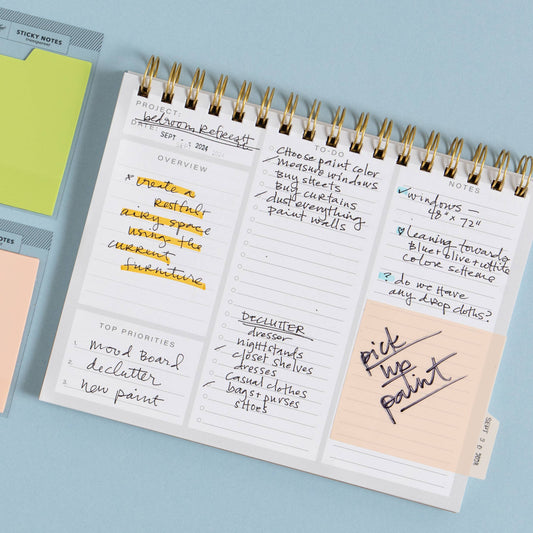 STICKY NOTES
transparent
NOTES
PROJECT:
bedroom Refresh
DATE:
SEPT. 2024
OVERVIEW
* create a
restful +
airy space
using the
current
furniture
TOP PRIORITIES
1. mood Board
2. declutter
3. new paint
TO-DO
Choose paint color
✓ measure windows
Buy sheets
Buy curtains
✓ dust everything
paint walls
DECLUTTER
dresser
nightstands
closet shelves
dresses
Casual clothes
✓ bags + purses
shoes
NOTES
✓ windows —
48" x 72"
♥ leaning towards
Blue + olive + white
color scheme
? do we have
any drop cloths?
pick
up
paint
SEPT 30 2024